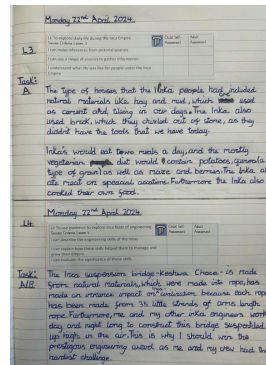 Monday 22nd April 2024
L3.
L.I: To explore daily life during life Inca Empire
Success Criteria: Lesson 3
Child Self-
Assessment
Adult
Assessment
I can make inferences from pictorial sources
I can use a range of sources to gather information
I understand what life was like for people under the Inca
Empire
Task:
A
The type of houses that the Inka people had included
natural materials like hay and mud, which are used
as cement and tiling in our days. The Inka also
used brick, which they chisled out of stone, as they
didn't have the tools that we have today.
Inka's would eat two meals a day, and the mostly
vegetarian diet would contain potatoes, a
type of grain as well as maize and berries. The Inka al
ate meat on speacial occations. Furthermore the Inka also
cooked their own food.
Monday 22nd April 2024
L4
L.I: To use evidence to explore Inca feats of engineering
Success Criteria: Lesson 4
Child Self-
Assessment
Adult
Assessment
I can describe the engineering skills of the Incas
I can explain how these skills helped them to manage and
grow their empire
I can evaluate the significance of these skills
Task:
A/B
The Incas suspension bridge - Keshwa Chaca - is made
from natural materials, which were made into rope, has
made an immence impact on civilisation because each rope
has been made from 36 little strands of arms length
rope. Furthermore, me and my other inka engineers work
day and night long to construct this bridge suspended
up high in the air. This is why I should win the
prestigous engineering award as me and my crew had the
hardest challenge.